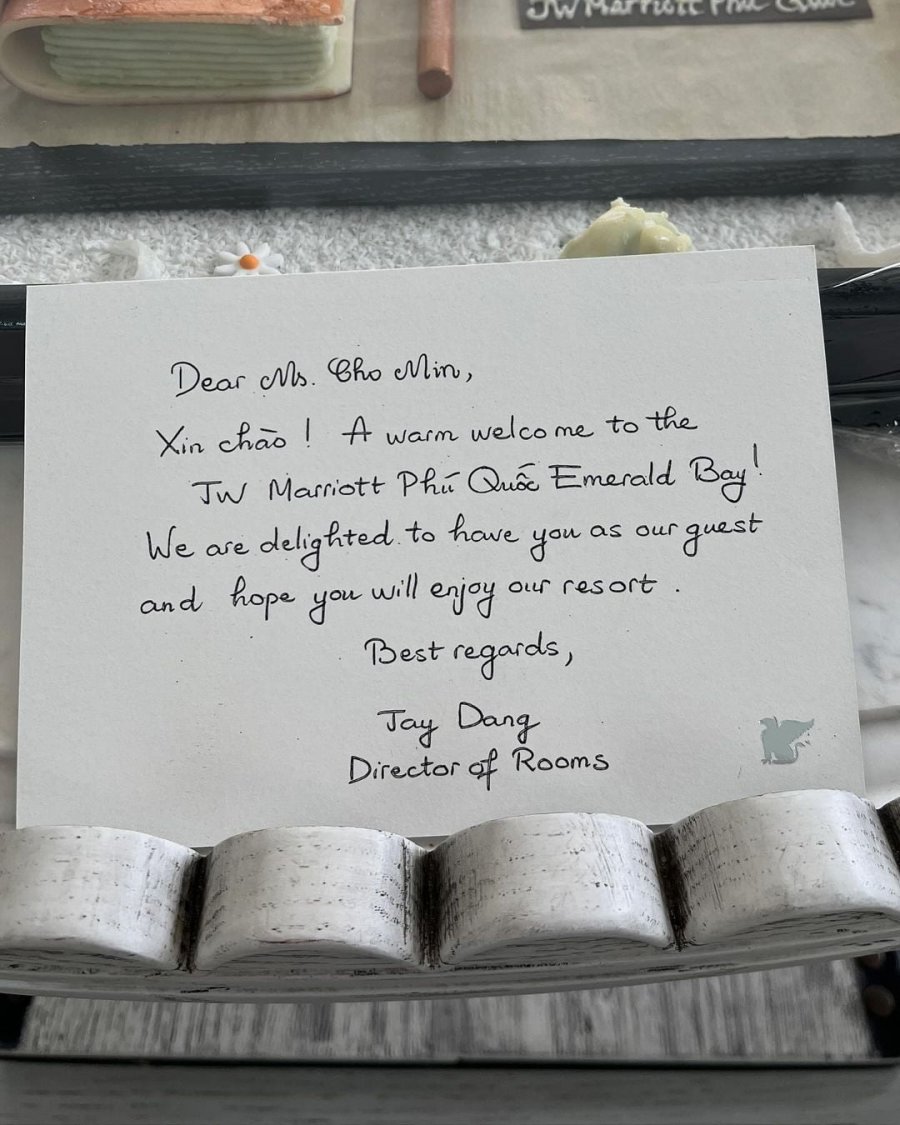 JW Marriott Phú Quốc
Dear Ms. Cho Min,
Xin chào! A warm welcome to the
JW Marriott Phú Quốc Emerald Bay!
We are delighted to have you as our guest
and hope you will enjoy our resort.
Best regards,
Jay Dang
Director of Rooms